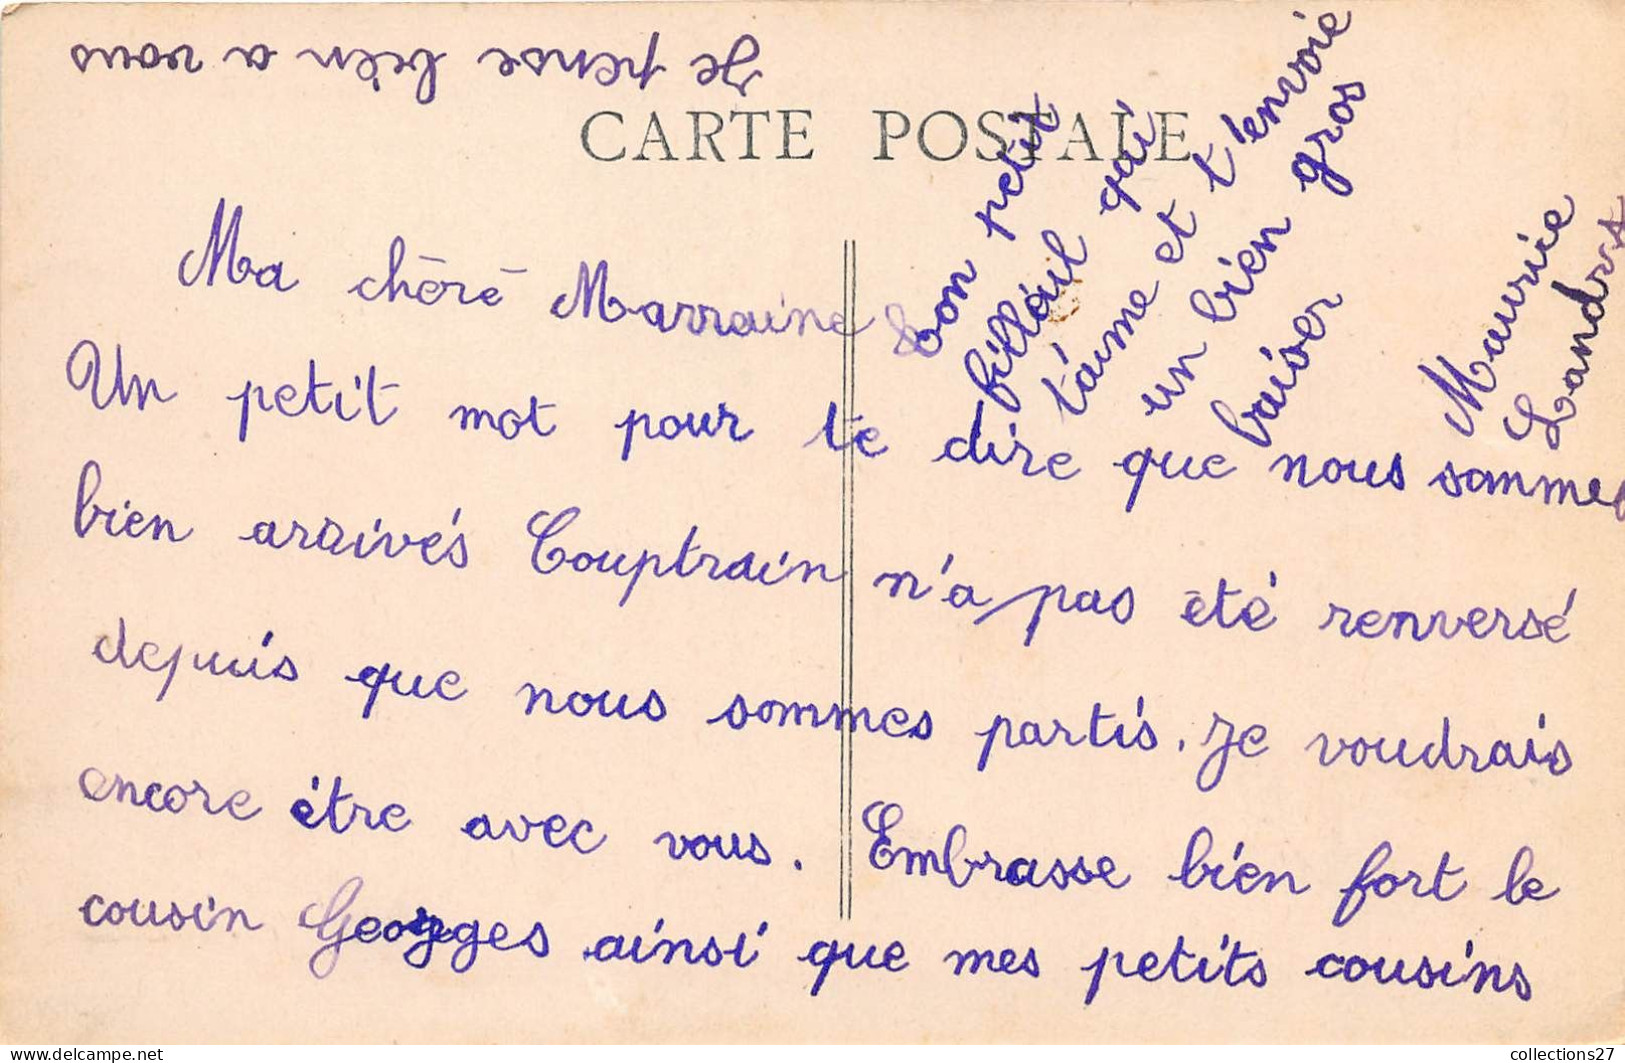 Je pense bien a vous
CARTE POSTALE
Ma chéré Marraine
Un petit mot pour te dire que nous sommes
bien arrivés Couptrain n'a pas été renversé
depuis que nous sommes partis. Je voudrais
encore étre avec vous. Embrasse bien fort le
cousin Georges ainsi que mes petits cousins
ton petit
filléul qui
t'aime et t'envoie
un bien gros
baiser
Maurice
Landry
www.delcampe.net
collections27